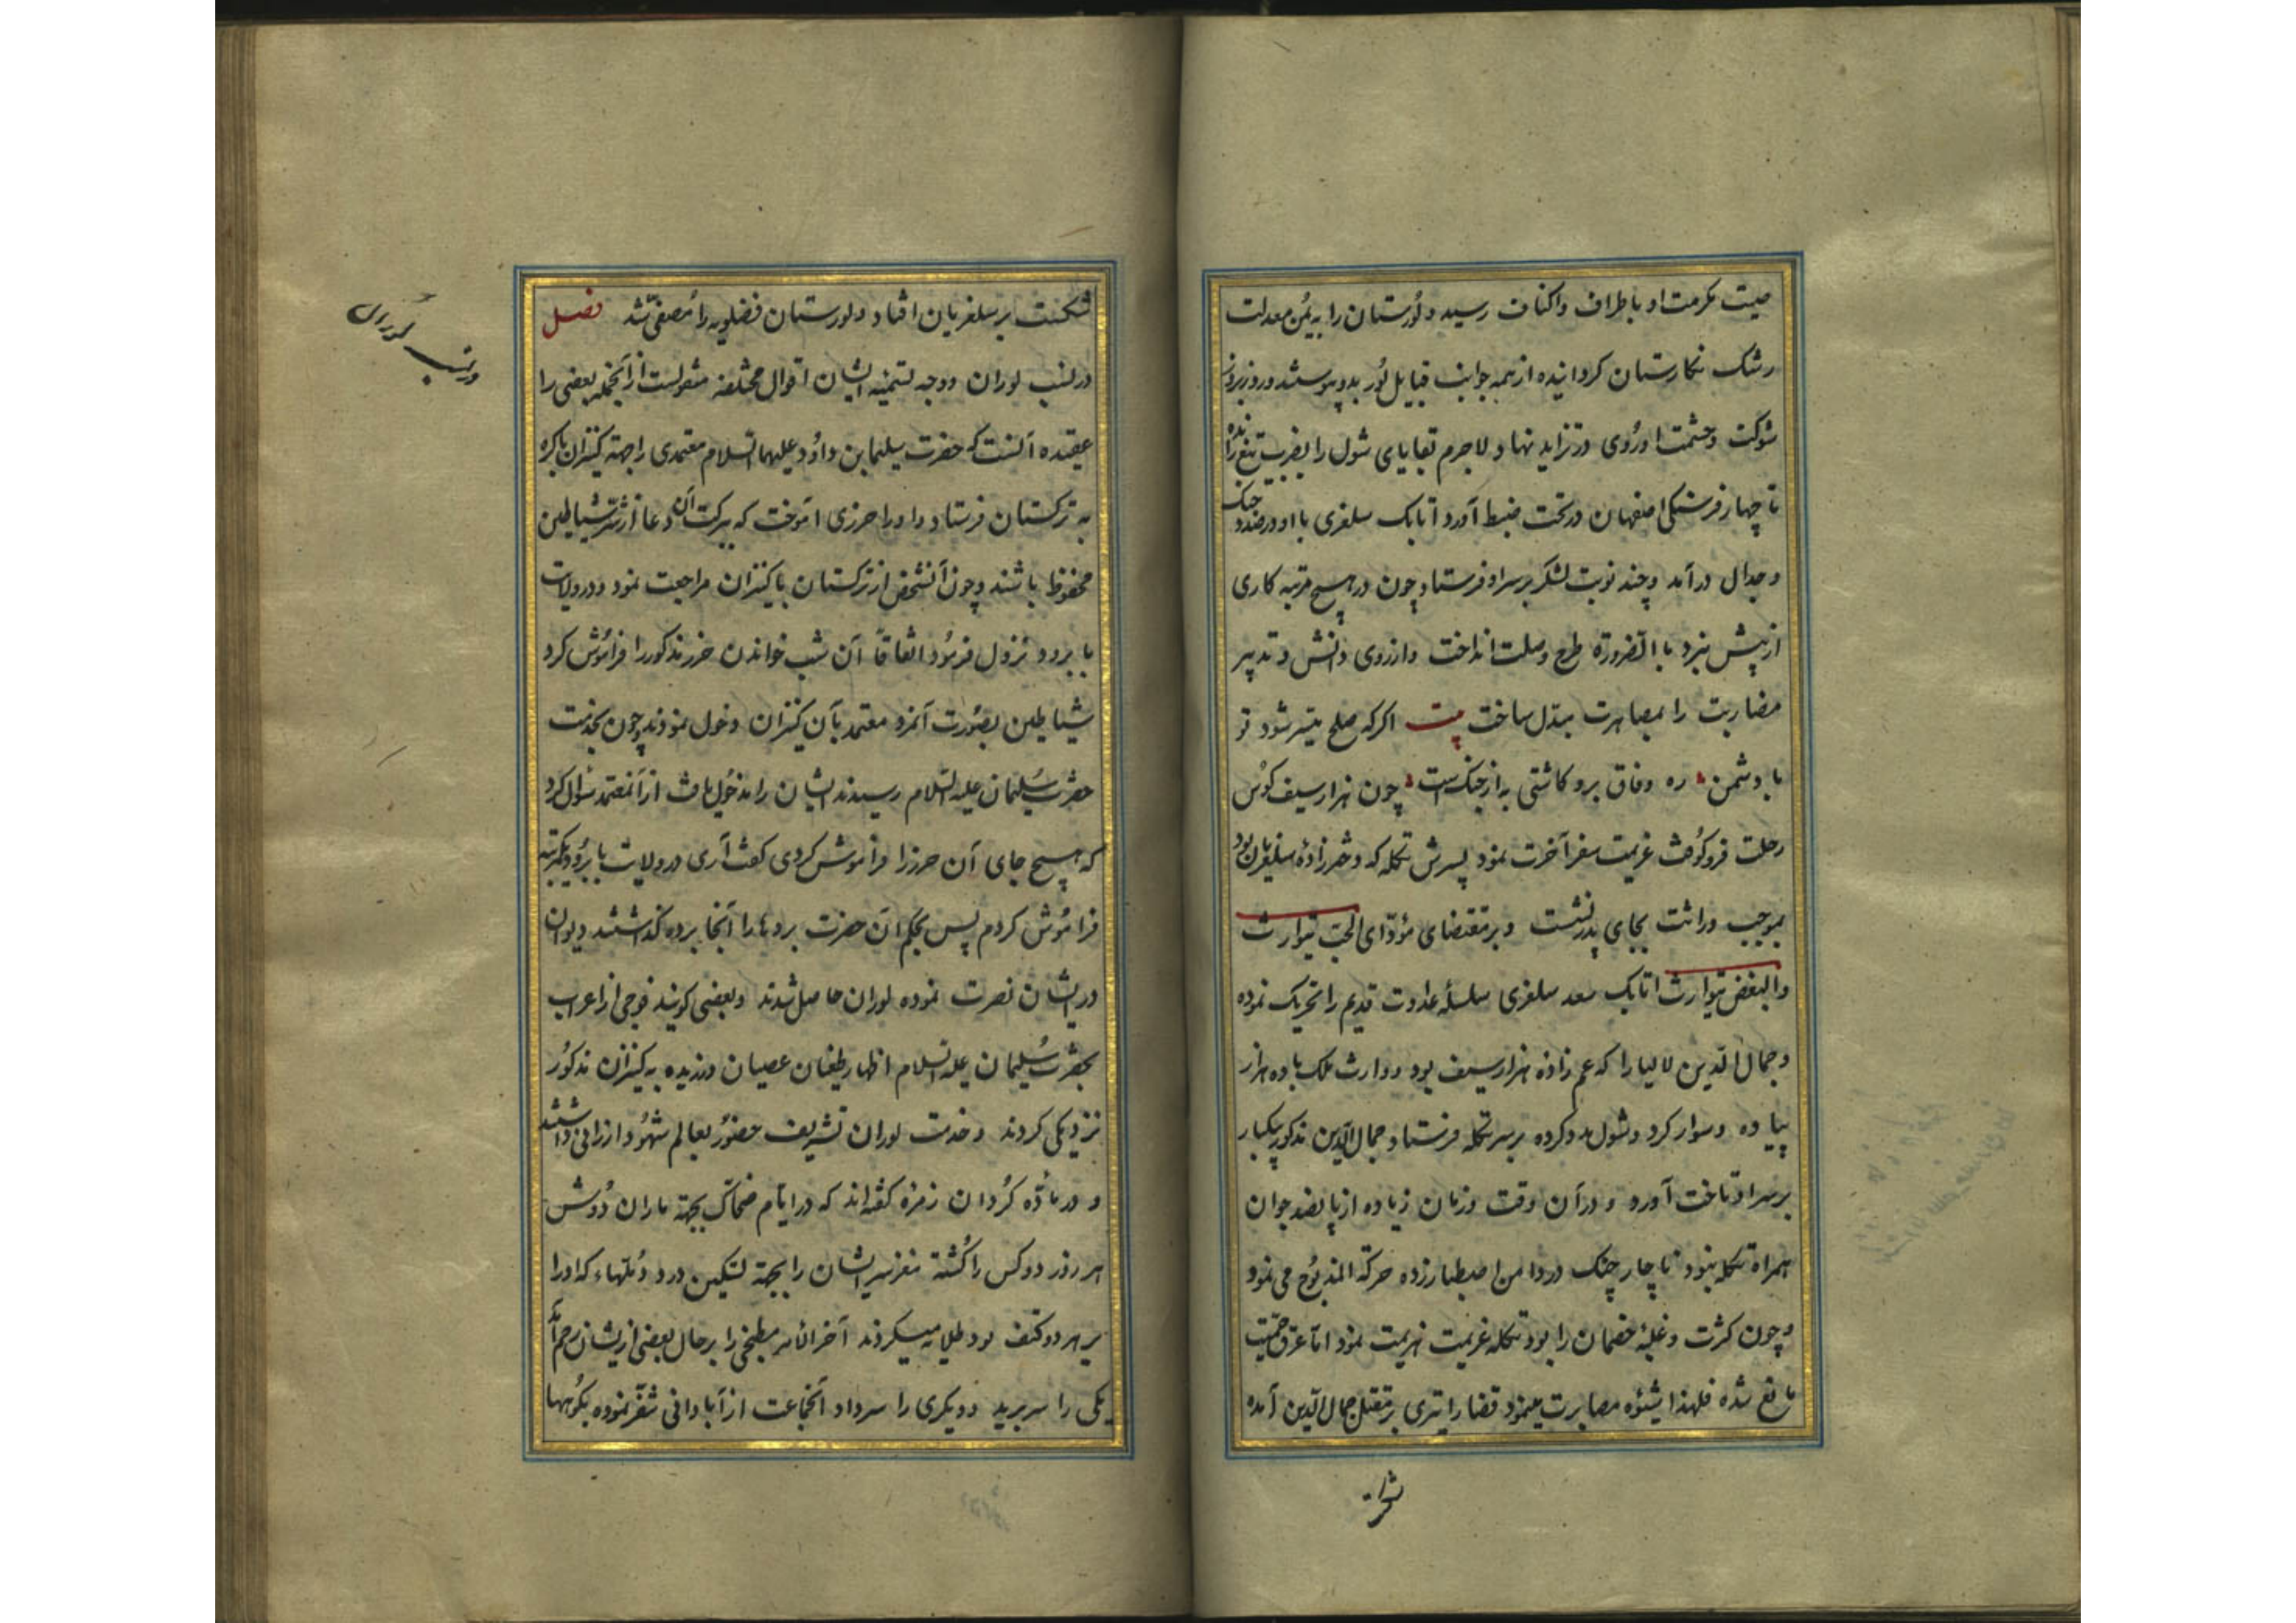 صیت مکرمت او باطراف واکناف رسید ولورستان را به یمن معدلت
رشک نکارستان کردانیده از همه جوانب قبایل لور بدو پیوستند و روز بروز
شوکت وحشمت او روی در تزاید نهاد ولاجرم بقایای شول را بضرب تیغ رانده
تا چهار فرسنکی اصفهان در تحت ضبط آورد اتابک سلغری با او در صدد جنک
وجدال درآمد وچند نوبت لشکر بر سر او فرستاد چون در هیچ مرتبه کاری
از پیش نبرد باالضرورة طرح وصلت انداخت واز روی دانش وتدبیر
مضاربت را بمصاهرت مبدل ساخت بیت اکر که صلح میسر شود تو
با دشمن ره وفاق برو کاشتی به از جنک است چون هزارسیف کوس
رحلت فرو کوفت عزیمت سفر آخرت نمود پسرش تکله که دخترزاده سلغریان بود
بموجب وراثت بجای پدر نشست وبر مقتضای مؤدّای الحبّ یتوارث
والبغض یتوارث اتابک سعد سلغری سلسلهٔ عداوت قدیم را تحریک نموده
وجمال الدین لالیارا که عم زاده هزارسیف بود ووارث ملک با ده هزار
پیاده وسوار کرد وشول مدد کرده بر سر تکله فرستاد وجمال الدین مذکور بیکبار
بر سر او تاخت آورد ودر آن وقت وزمان زیاده از پانصد جوان
همراه تکله نبود ناچار چنک در دامن اصطبار زده حرکة المذبوح می نمود
وچون کثرت وغلبهٔ خصمان را بود تکله عزیمت هزیمت نمود امّا عرق حمیّت
مانع شده فلهذا شیوه مصابرت مینمود قضا را تیری بر مقتل جمال الدین آمده
شکست بر سلغریان افتاد ولورستان فضلویه را مصفی شد فصل
در نسب لوران ووجه تسمیه ایشان اقوال مختلفه منقولست از آنجمله بعضی را
عقیده آنست که حضرت سلیمان بن داود علیهما السلام معتمدی را جهة کنیزان باکره
به ترکستان فرستاد واورا حرزی اموخت که ببرکت آن دعا از شر شیاطین
محفوظ باشند وچون آنشخص از ترکستان با کنیزان مراجعت نمود ودر ولایت
بابرود نزول فرمود اتفاقاً آن شب خواندن حرز مذکور را فراموش کرد
شیاطین بصورت آنمرد معتمد بآن کنیزان دخول نمودند چون بخدمت
حضرت سلیمان علیه السلام رسیدند ایشان را مدخول یافت از آنمعتمد سؤال کرد
که هیچ جای آن حرز را فراموش کردی کفت آری در ولایت بابرود یکمرتبه
فراموش کردم پس بحکم آن حضرت بردهارا آنجا برده کذاشتند دیوان
در ایشان نصرت نموده لوران حاصل شدند وبعضی کویند فوجی از اعراب
بحضرت سلیمان علیه السلام اظهار طغیان عصیان ورزیده به کنیزان مذکور
نزدیکی کردند وخدمت لوران تشریف حضور بعالم شهود ارزانی داشتند
ودر مادّه کردان زمره کفته اند که در ایّام ضحّاک بجهة ماران دوش
هر روز دو کس را کشته مغز سر ایشان را بجهة تسکین درد دملهاء که اورا
بر هر دو کتف بود طلایه میکردند آخر الامر مطبخی را بر حال بعضی از یشان رحم آمد
یکی را سر برید ودیکری را سر داد آنجماعت از آبادانی تنفّر نموده بکوهها